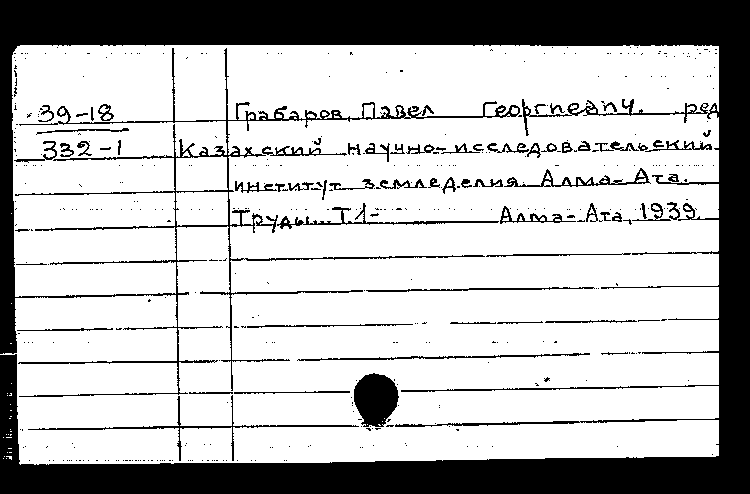 39-18 Грабаров, Павел Георгиевич. ред
332-1 Казахский научно-исследовательский
институт земледелия. Алма-Ата.
Труды... Т.1- Алма-Ата, 1939